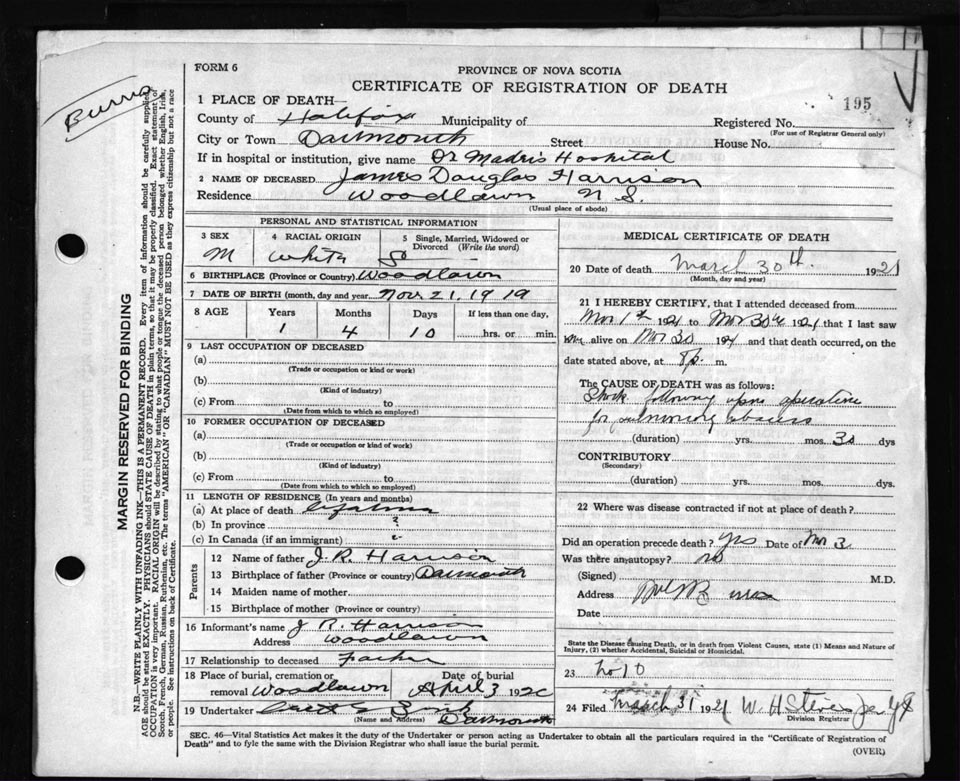 Burns
FORM 6
PROVINCE OF NOVA SCOTIA
CERTIFICATE OF REGISTRATION OF DEATH
195
1 PLACE OF DEATH—
County of Halifax Municipality of
Registered No.
(For use of Registrar General only)
City or Town Dartmouth Street House No.
If in hospital or institution, give name Dr Hospital
2 NAME OF DECEASED James Douglas Harrison
Residence Woodlawn N S.
(Usual place of abode)
PERSONAL AND STATISTICAL INFORMATION
3 SEX
M
4 RACIAL ORIGIN
White
5 Single, Married, Widowed or Divorced (Write the word)
S
6 BIRTHPLACE (Province or Country) Woodlawn
7 DATE OF BIRTH (month, day and year) Nov 21. 19 19
8 AGE Years Months Days If less than one day,
1 4 10 hrs. or min.
9 LAST OCCUPATION OF DECEASED
(a)
(Trade or occupation or kind or work)
(b)
(Kind of industry)
(c) From to
(Date from which to which so employed)
10 FORMER OCCUPATION OF DECEASED
(a)
(Trade or occupation or kind of work)
(b)
(Kind of industry)
(c) From to
(Date from which to which so employed)
11 LENGTH OF RESIDENCE (In years and months)
(a) At place of death
(b) In province
(c) In Canada (if an immigrant)
Parents
12 Name of father J. R. Harrison
13 Birthplace of father (Province or country) Dartmouth
14 Maiden name of mother
15 Birthplace of mother (Province or country)
16 Informant's name J R. Harrison
Address Woodlawn
17 Relationship to deceased Father
18 Place of burial, cremation or removal Woodlawn
Date of burial
April 3 192
19 Undertaker
(Name and Address) Dartmouth
MEDICAL CERTIFICATE OF DEATH
20 Date of death March 30th. 1921
(Month, day and year)
21 I HEREBY CERTIFY, that I attended deceased from
Mar 1st 1921 to Mar 30th 1921 that I last saw
him alive on Mar 30 1921 and that death occurred, on the
date stated above, at 8 p. m.
The CAUSE OF DEATH was as follows:
Shock following upon operation
for pulmonary abscess
(duration) yrs. mos. 30 dys
CONTRIBUTORY
(Secondary)
(duration) yrs. mos. dys.
22 Where was disease contracted if not at place of death?
Did an operation precede death? Yes Date of Mar 3
Was there an autopsy? no
(Signed) M.D.
Address
Date
State the Disease Causing Death, or in death from Violent Causes, state (1) Means and Nature of
Injury, (2) whether Accidental, Suicidal or Homicidal.
23 no 10
24 Filed March 31 1921 W. H Stevens
Division Registrar
SEC. 46—Vital Statistics Act makes it the duty of the Undertaker or person acting as Undertaker to obtain all the particulars required in the "Certificate of Registration of
Death" and to fyle the same with the Division Registrar who shall issue the burial permit.
(OVER)
MARGIN RESERVED FOR BINDING
N.B.—WRITE PLAINLY WITH UNFADING INK—THIS IS A PERMANENT RECORD. Every item of information should be carefully supplied.
AGE should be stated EXACTLY. PHYSICIANS should STATE CAUSE OF DEATH in plain terms, so that it may be properly classified. Exact statement of
OCCUPATION is very important. RACIAL ORIGIN will be described by stating to what people or tongue the deceased person belonged whether English, Irish,
Scotch, French, German, Russian, Ruthenian, etc. The terms "AMERICAN" or "CANADIAN" MUST NOT BE USED as they express citizenship but not a race
or people. See instructions on back of Certificate.